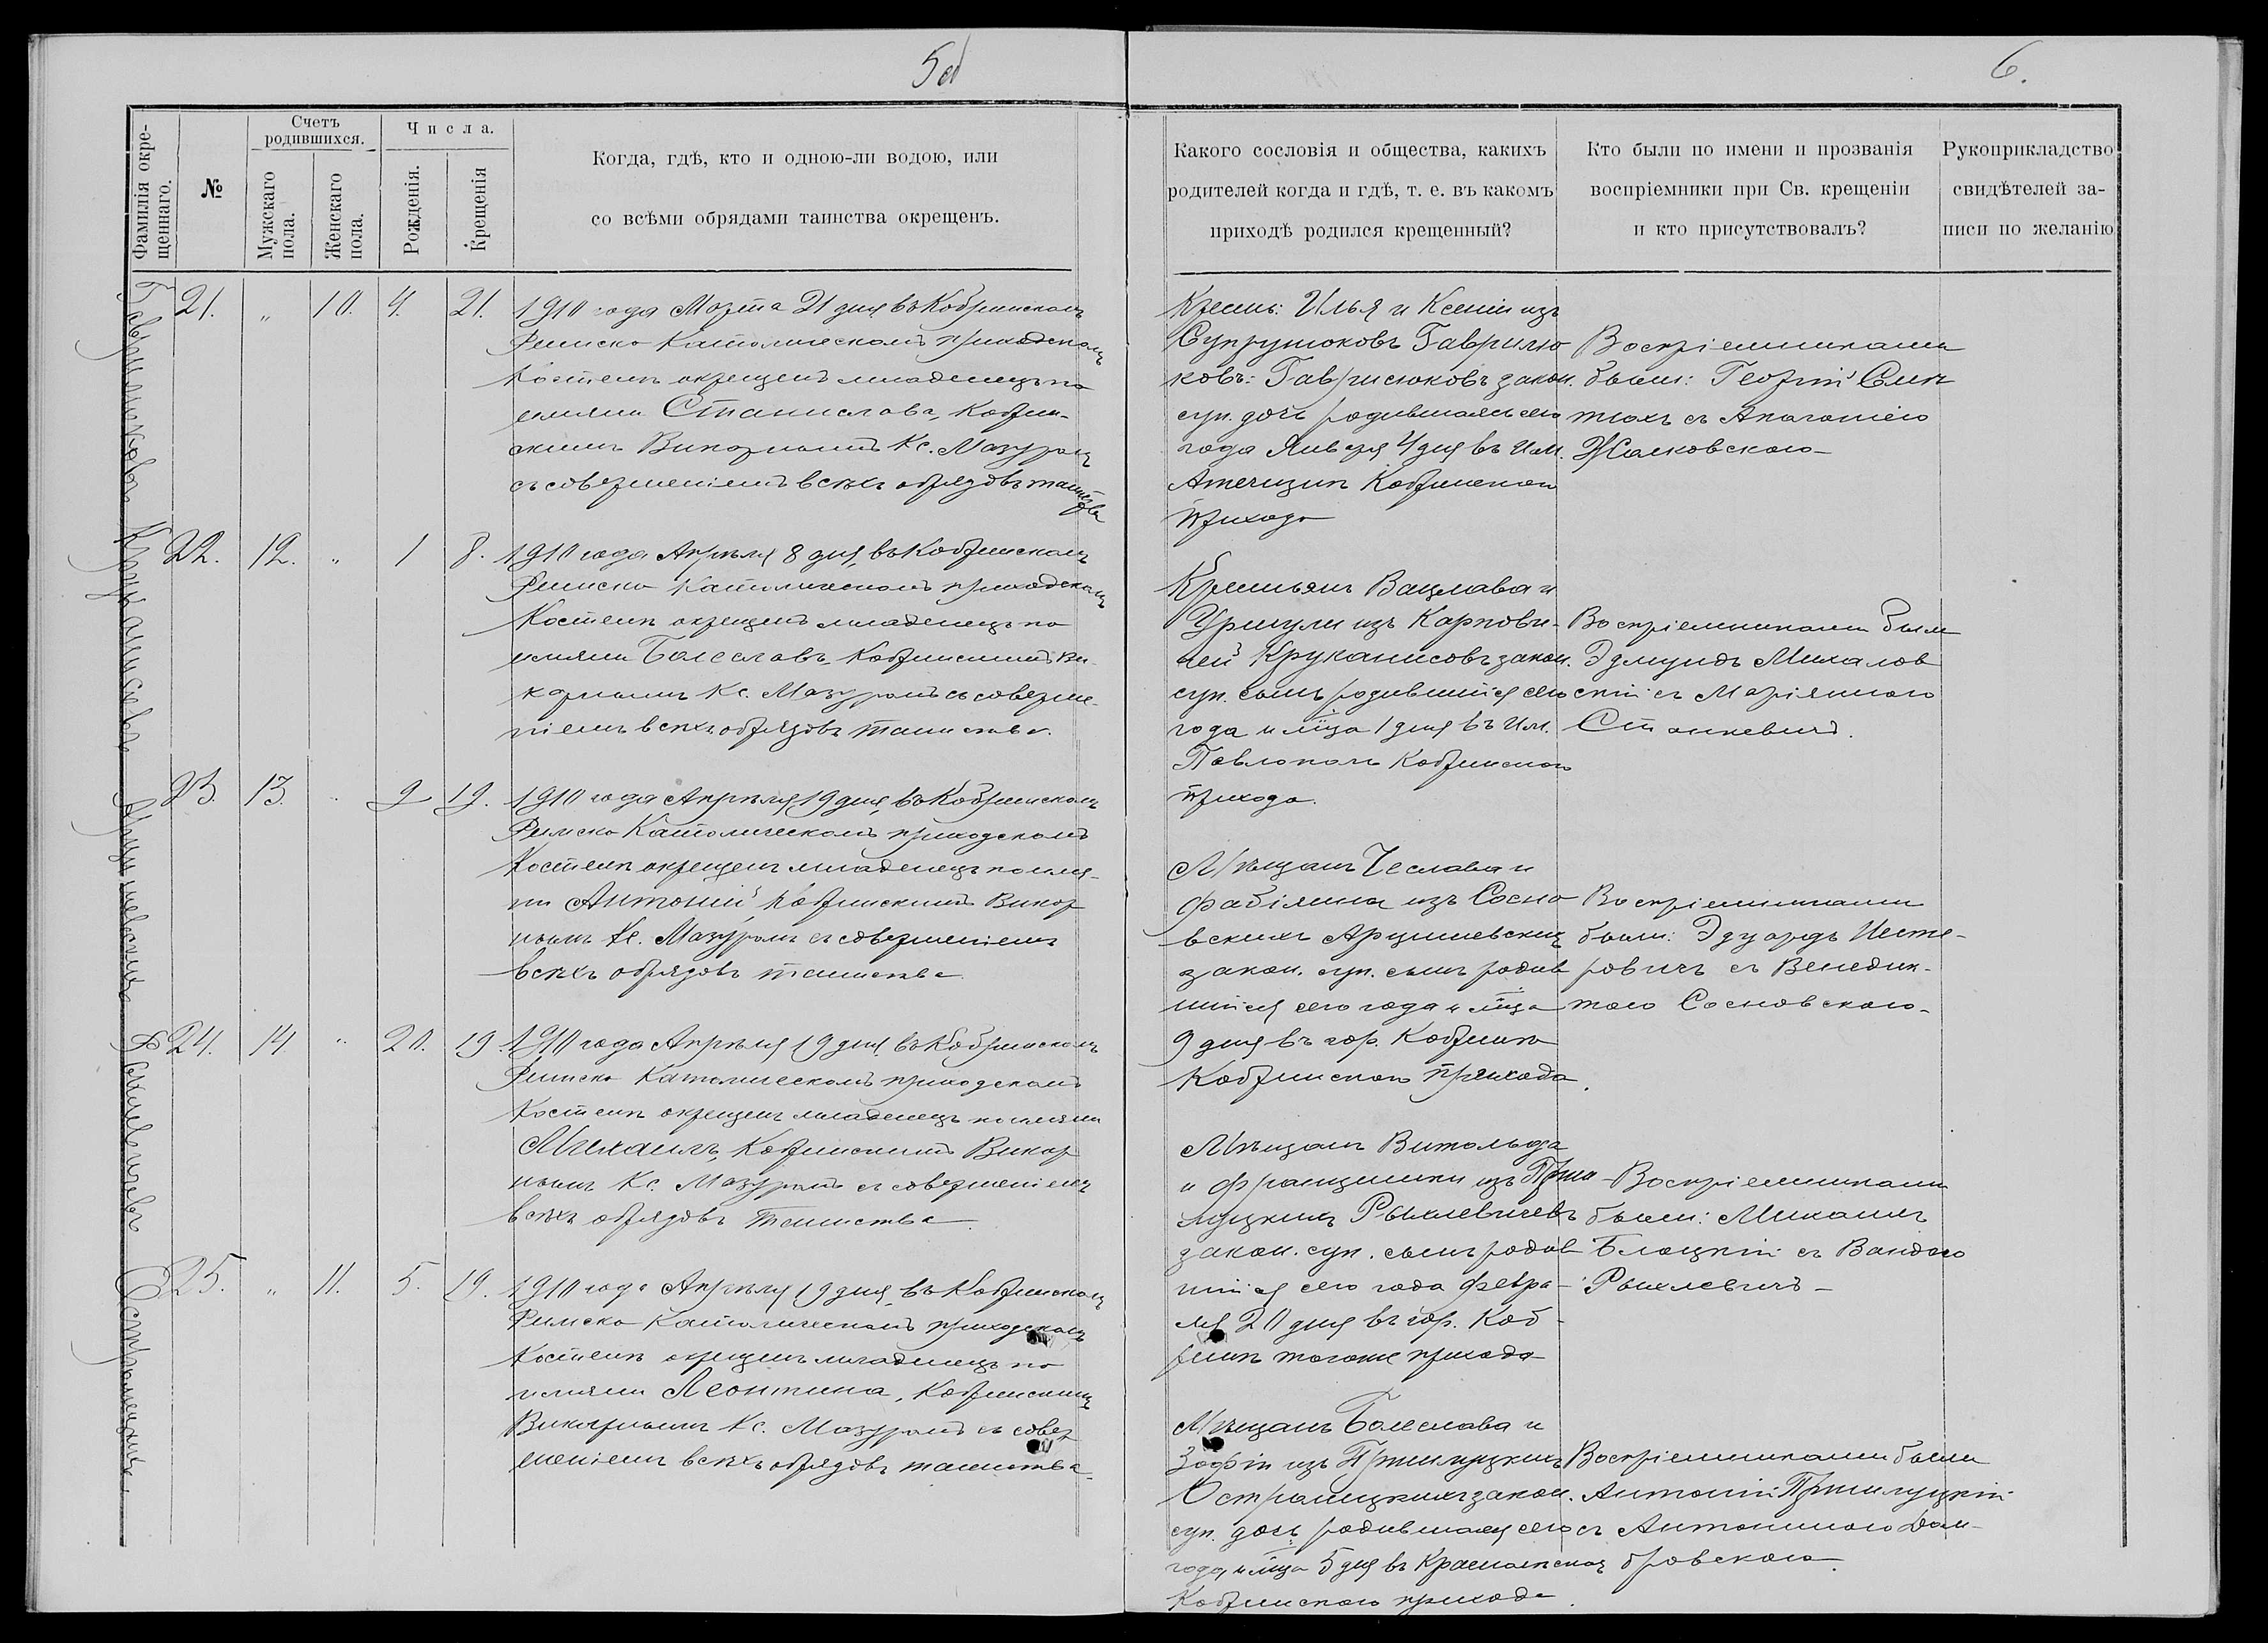 5об
6.
Фамилія окре-
щеннаго.
№
Счетъ
родившихся.
Мужскаго
пола.
Женскаго
пола.
Числа.
Рожденія.
Крещенія
Когда, гдѣ, кто и одною-ли водою, или
со всѣми обрядами таинства окрещенъ.
Какого сословія и общества, какихъ
родителей когда и гдѣ, т. е. въ какомъ
приходѣ родился крещенный?
Кто были по имени и прозванія
воспріемники при Св. крещеніи
и кто присутствовалъ?
Рукоприкладство
свидѣтелей за-
писи по желанію
21. " 10. 4. 21.
1910 года Марта 21 дня въ Кобринскомъ
Римско Католическомъ приходскомъ
Костелѣ окрещенъ младенецъ по
имени Станислава, Кобрин-
скимъ Викарнымъ Кс. Мазуромъ
съ совершеніемъ всѣхъ обрядовъ таинства
Крестьянъ: Илья и Ксеніи изъ
Супрунюковъ Гаврилю
ковъ: Гаврисюковъ закон.
суп. дочь родившаяся сего
года Января 4 дня въ Им.
Кобринскаго
прихода
Воспріемниками
были: Георгій
тюхъ съ
Жалковскою
22. 12. " 1 8.
1910 года Апрѣля 8 дня, въ Кобринскомъ
Римско Католическомъ приходскомъ
Костелѣ окрещенъ младенецъ по
имени Болеславъ, Кобринскимъ Ви-
карнымъ Кс. Мазуромъ съ соверше-
ніемъ всѣхъ обрядовъ таинства.
Крестьянъ Вацлава и
Уршули изъ Карпови-
чей Круканисовъ закон.
суп. сынъ родившійся сего
года и м-ца 1 дня въ Им.
Кобринскаго
прихода.
Воспріемниками были
Эдмундъ Михалов
скій съ Маріанною
Станкевичъ.
23. 13. " 9 19.
1910 года Апрѣля 19 дня, въ Кобринскомъ
Римско Католическомъ приходскомъ
Костелѣ окрещенъ младенецъ по име-
ни Антоній, Кобринскимъ Викар
нымъ Кс. Мазуромъ съ совершеніемъ
всѣхъ обрядовъ таинства
Мѣщанъ Чеслава и
Фабіянна изъ Сосно
вскихъ Арцишевскихъ
закон. суп. сынъ родив
шійся сего года и м-ца
9 дня въ гор. Кобринѣ
Кобринскаго прихода.
Воспріемниками
были: Эдуардъ Несте-
ровичъ съ Венедик-
тою Сосновскою.
24. 14 " 20. 19.
1910 года Апрѣля 19 дня, въ Кобринскомъ
Римско Католическомъ приходскомъ
Костелѣ окрещенъ младенецъ по имени
Михаилъ, Кобринскимъ Викар
нымъ Кс. Мазуромъ съ совершеніемъ
всѣхъ обрядовъ таинства.
Мѣщанъ Витольда
и Францишки изъ При-
луцкихъ Рыхлевичевъ
закон. суп. сынъ родив
шійся сего года Февра-
ля 20 дня въ гор. Коб-
ринѣ тогоже прихода
Воспріемниками
были: Михаилъ
Блоцкій съ Вандою
Рыхлевичъ
25. " 11. 5. 19.
1910 года Апрѣля 19 дня, въ Кобринскомъ
Римско Католическомъ приходскомъ
Костелѣ окрещенъ младенецъ по
имени Леонтина, Кобринскимъ
Викарнымъ Кс. Мазуромъ съ совер
шеніемъ всѣхъ обрядовъ таинства
Мѣщанъ Болеслава и
Зофіи изъ Прилуцкихъ
Остромецкихъ закон.
суп. дочь родившаяся сего
года и м-ца 5 дня въ
Кобринскаго прихода.
Воспріемниками были
Антоній Прилуцкій
съ Антониною Дом-
бровскою.